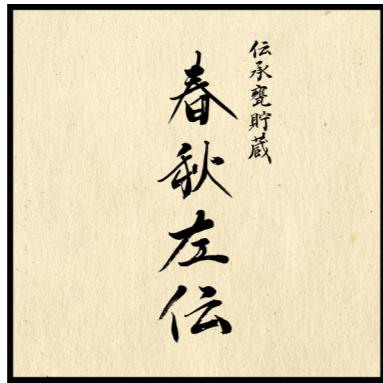 伝承甕貯蔵
春秋左伝